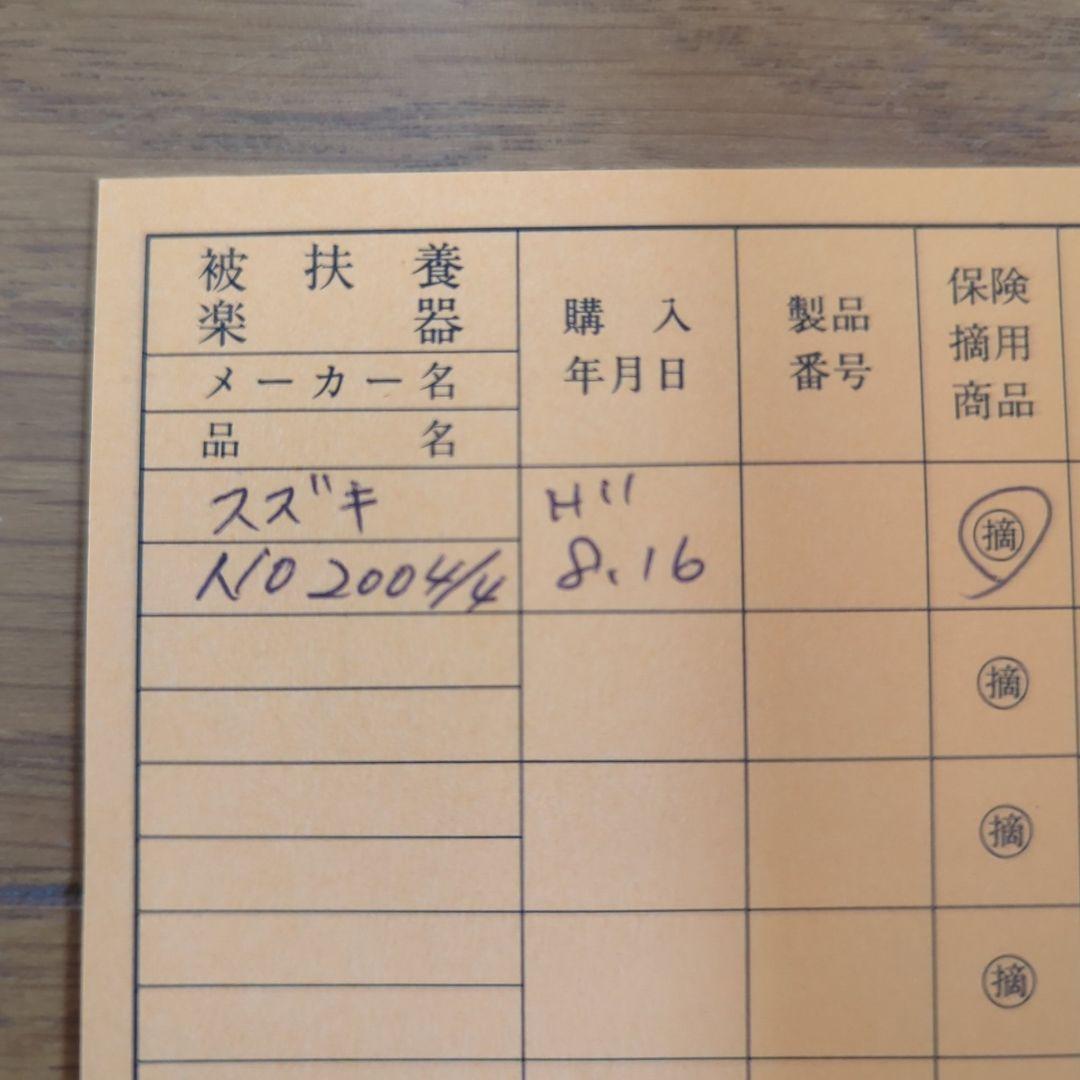 被扶養
楽器
メーカー名
品名
購入
年月日
製品
番号
保険
摘用
商品
スズキ
NO 2004/4
H11
8.16
摘
摘
摘
摘